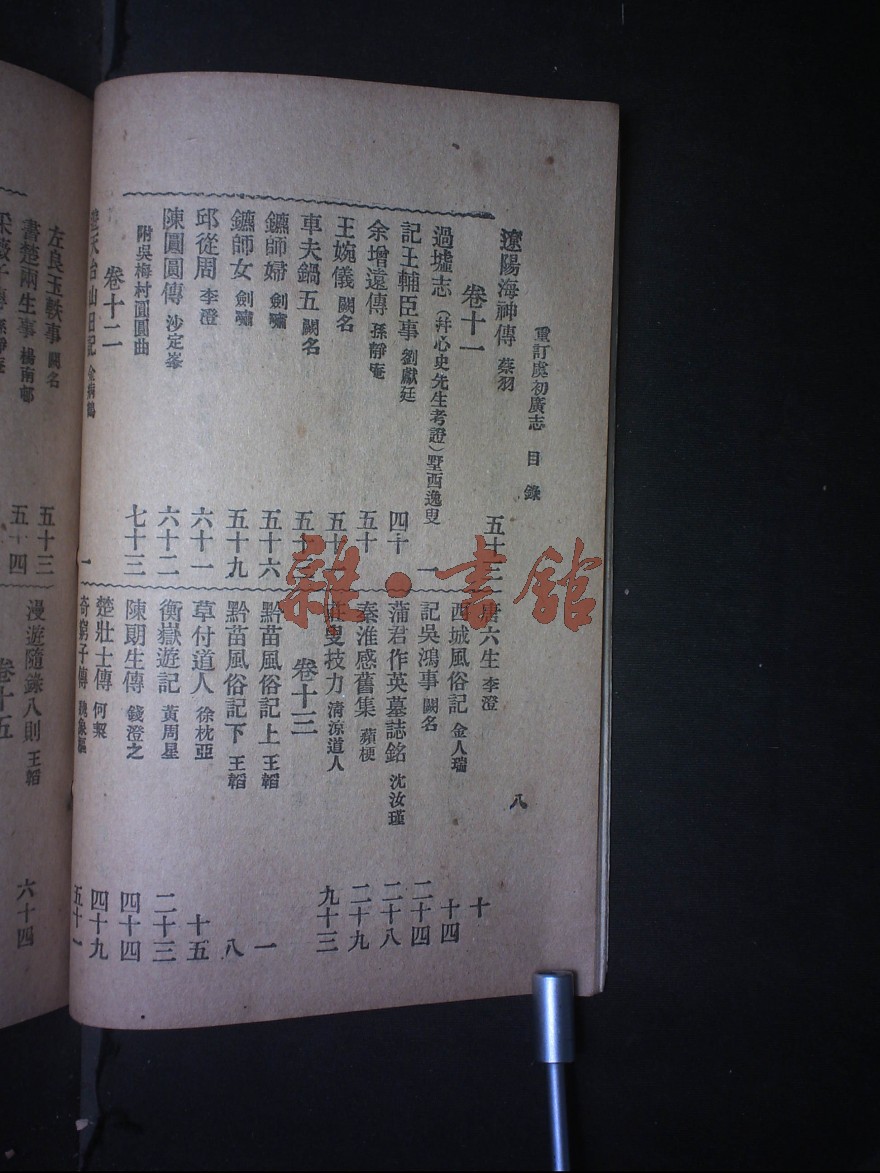 重訂虞初廣志 目錄 八
遼陽海神傳 蔡羽 五十三
卷十一
過墟志（幷心史先生考證）墅西逸叟 一
記王輔臣事 劉獻廷 四十
余增遠傳 孫靜庵 五十
王婉儀 闕名
車夫鍋五 闕名
鑣師婦 劍嘯 五十六
鑣師女 劍嘯 五十九
邱從周 李澄 六十一
陳圓圓傳 沙定峯 六十二
附吳梅村圓圓曲 七十三
卷十二
天台山日記 一
唐六生 李澄 十
西城風俗記 金人瑞 十四
記吳鴻事 闕名 二十四
蒲君作英墓誌銘 沈汝瑾 二十八
秦淮感舊集 蘋梗 二十九
叟技力 清涼道人 九十三
卷十三
黔苗風俗記上 王韜 一
黔苗風俗記下 王韜 八
草付道人 徐枕亞 十五
衡嶽遊記 黃周星 二十三
陳朗生傳 錢澄之 四十四
楚壯士傳 何絜 四十九
奇窮子傳 五十一
左良玉軼事 闕名 五十三
書楚兩生事 楊南邨 五十四
漫遊隨錄八則 王韜 六十四
卷十五
雜·書館